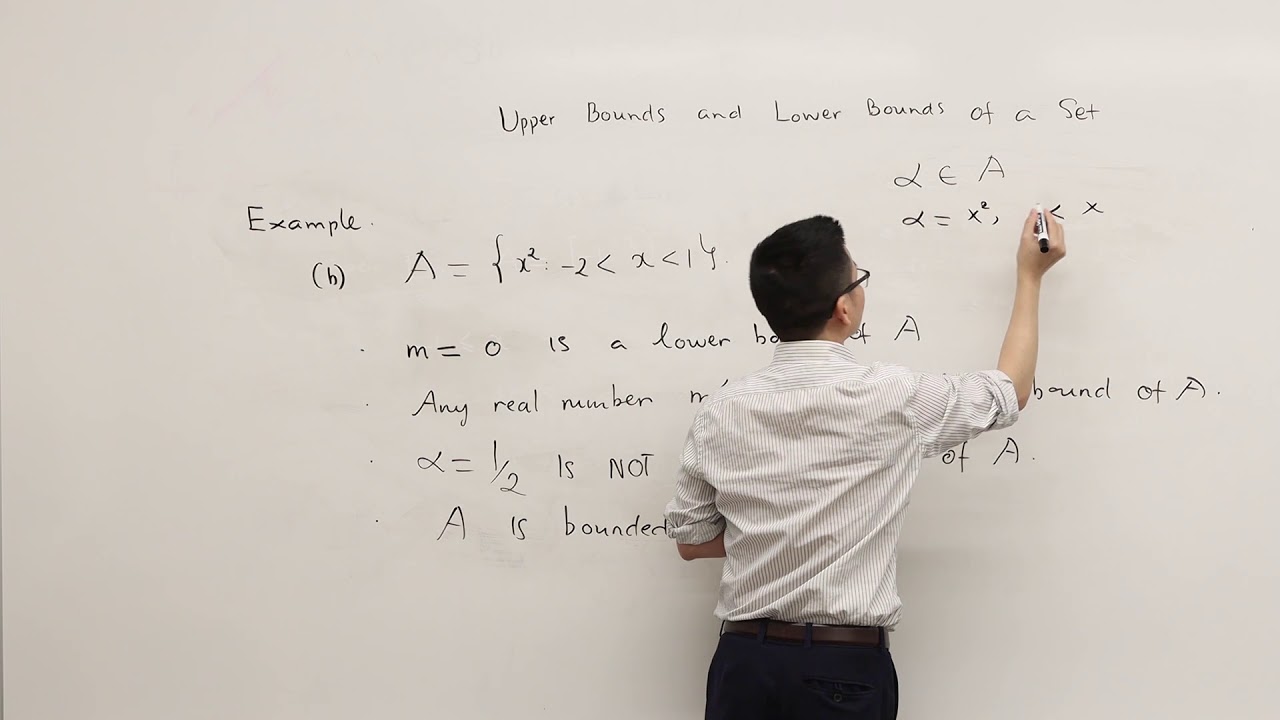 Upper Bounds and Lower Bounds of a Set
α ∈ A
α = x², < x
Example.
(b) A = { x² : -2 < x < 1 }.
. m = 0 is a lower of A
. Any real number bound of A.
. α = 1/2 is NOT of A.
. A is bounded